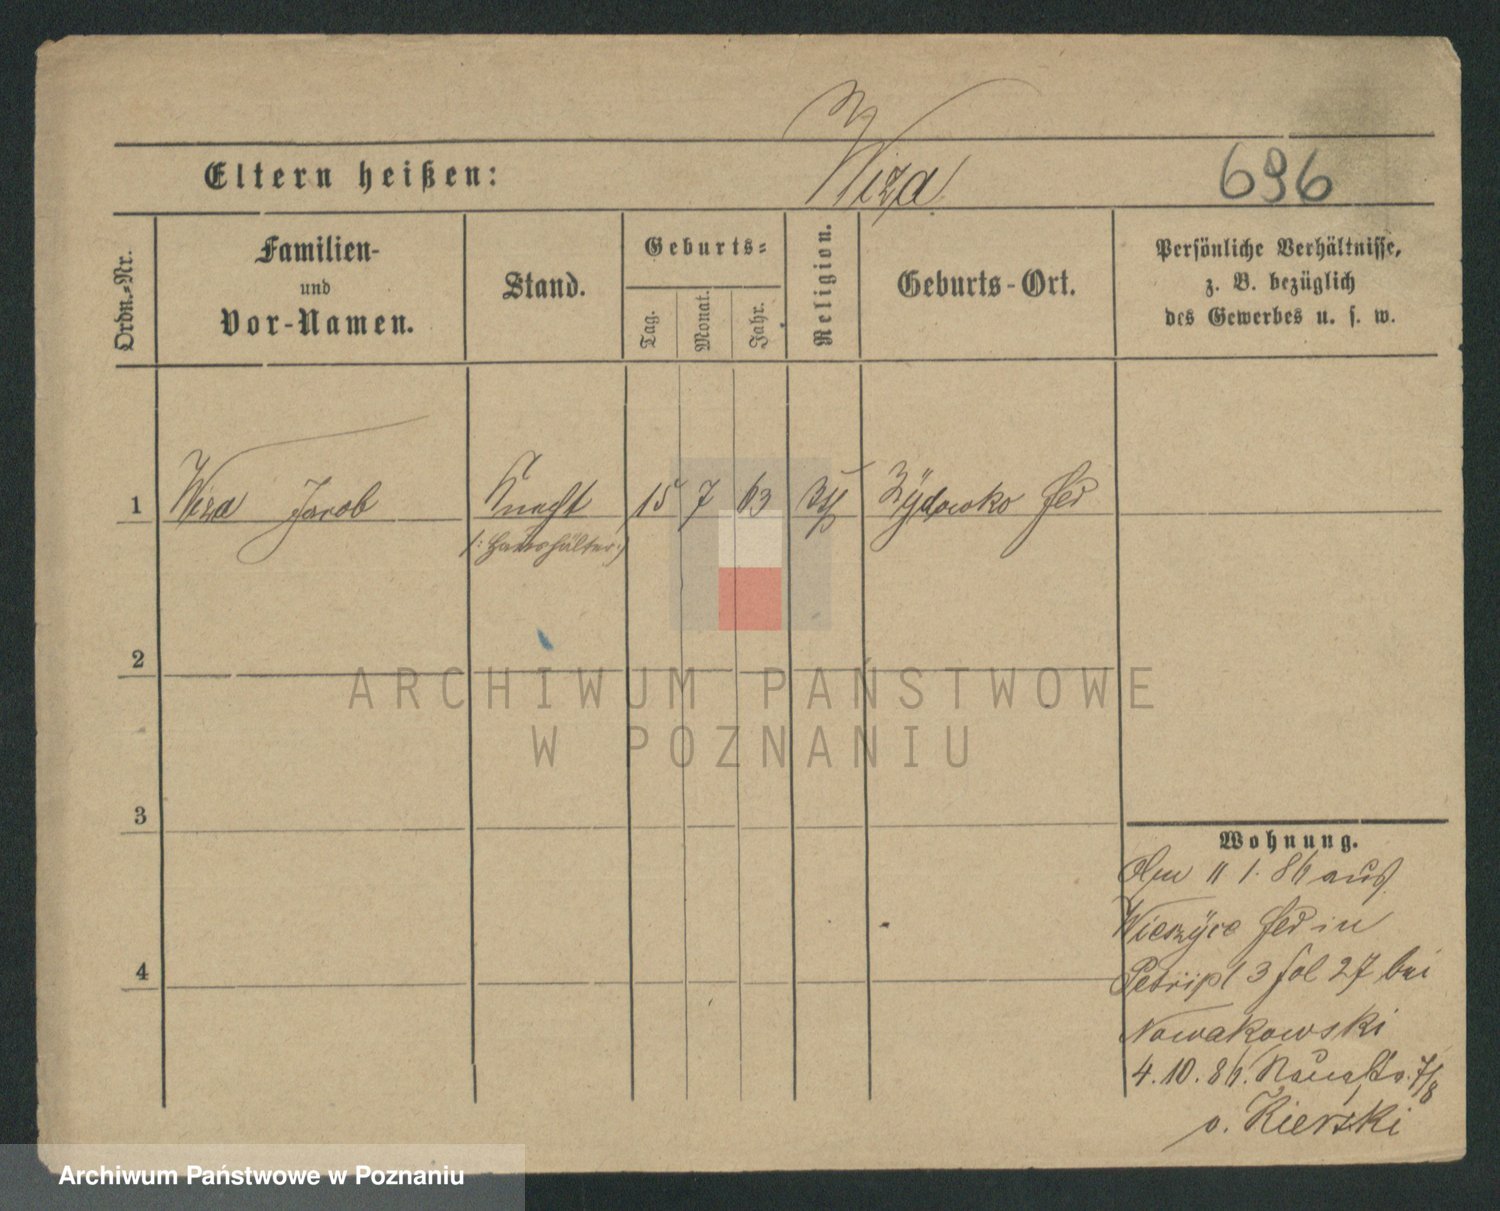 Eltern heißen: Wiza 696
Ordn.-Nr. Familien- und Vor-Namen. Stand. Geburts- Tag. Monat. Jahr. Religion. Geburts-Ort. Persönliche Verhältnisse, z. B. bezüglich des Gewerbes u. s. w.
1 Wiza Jacob Knecht 15 7 63 Żÿdowko
(: Haushälter :)
2
ARCHIWUM PAŃSTWOWE
W POZNANIU
3
Wohnung.
Am 11 1. 86 aus
in
4
3 fol 27 bei
Nowakowski
4. 10. 86. 7/8
v. Kierski
Archiwum Państwowe w Poznaniu